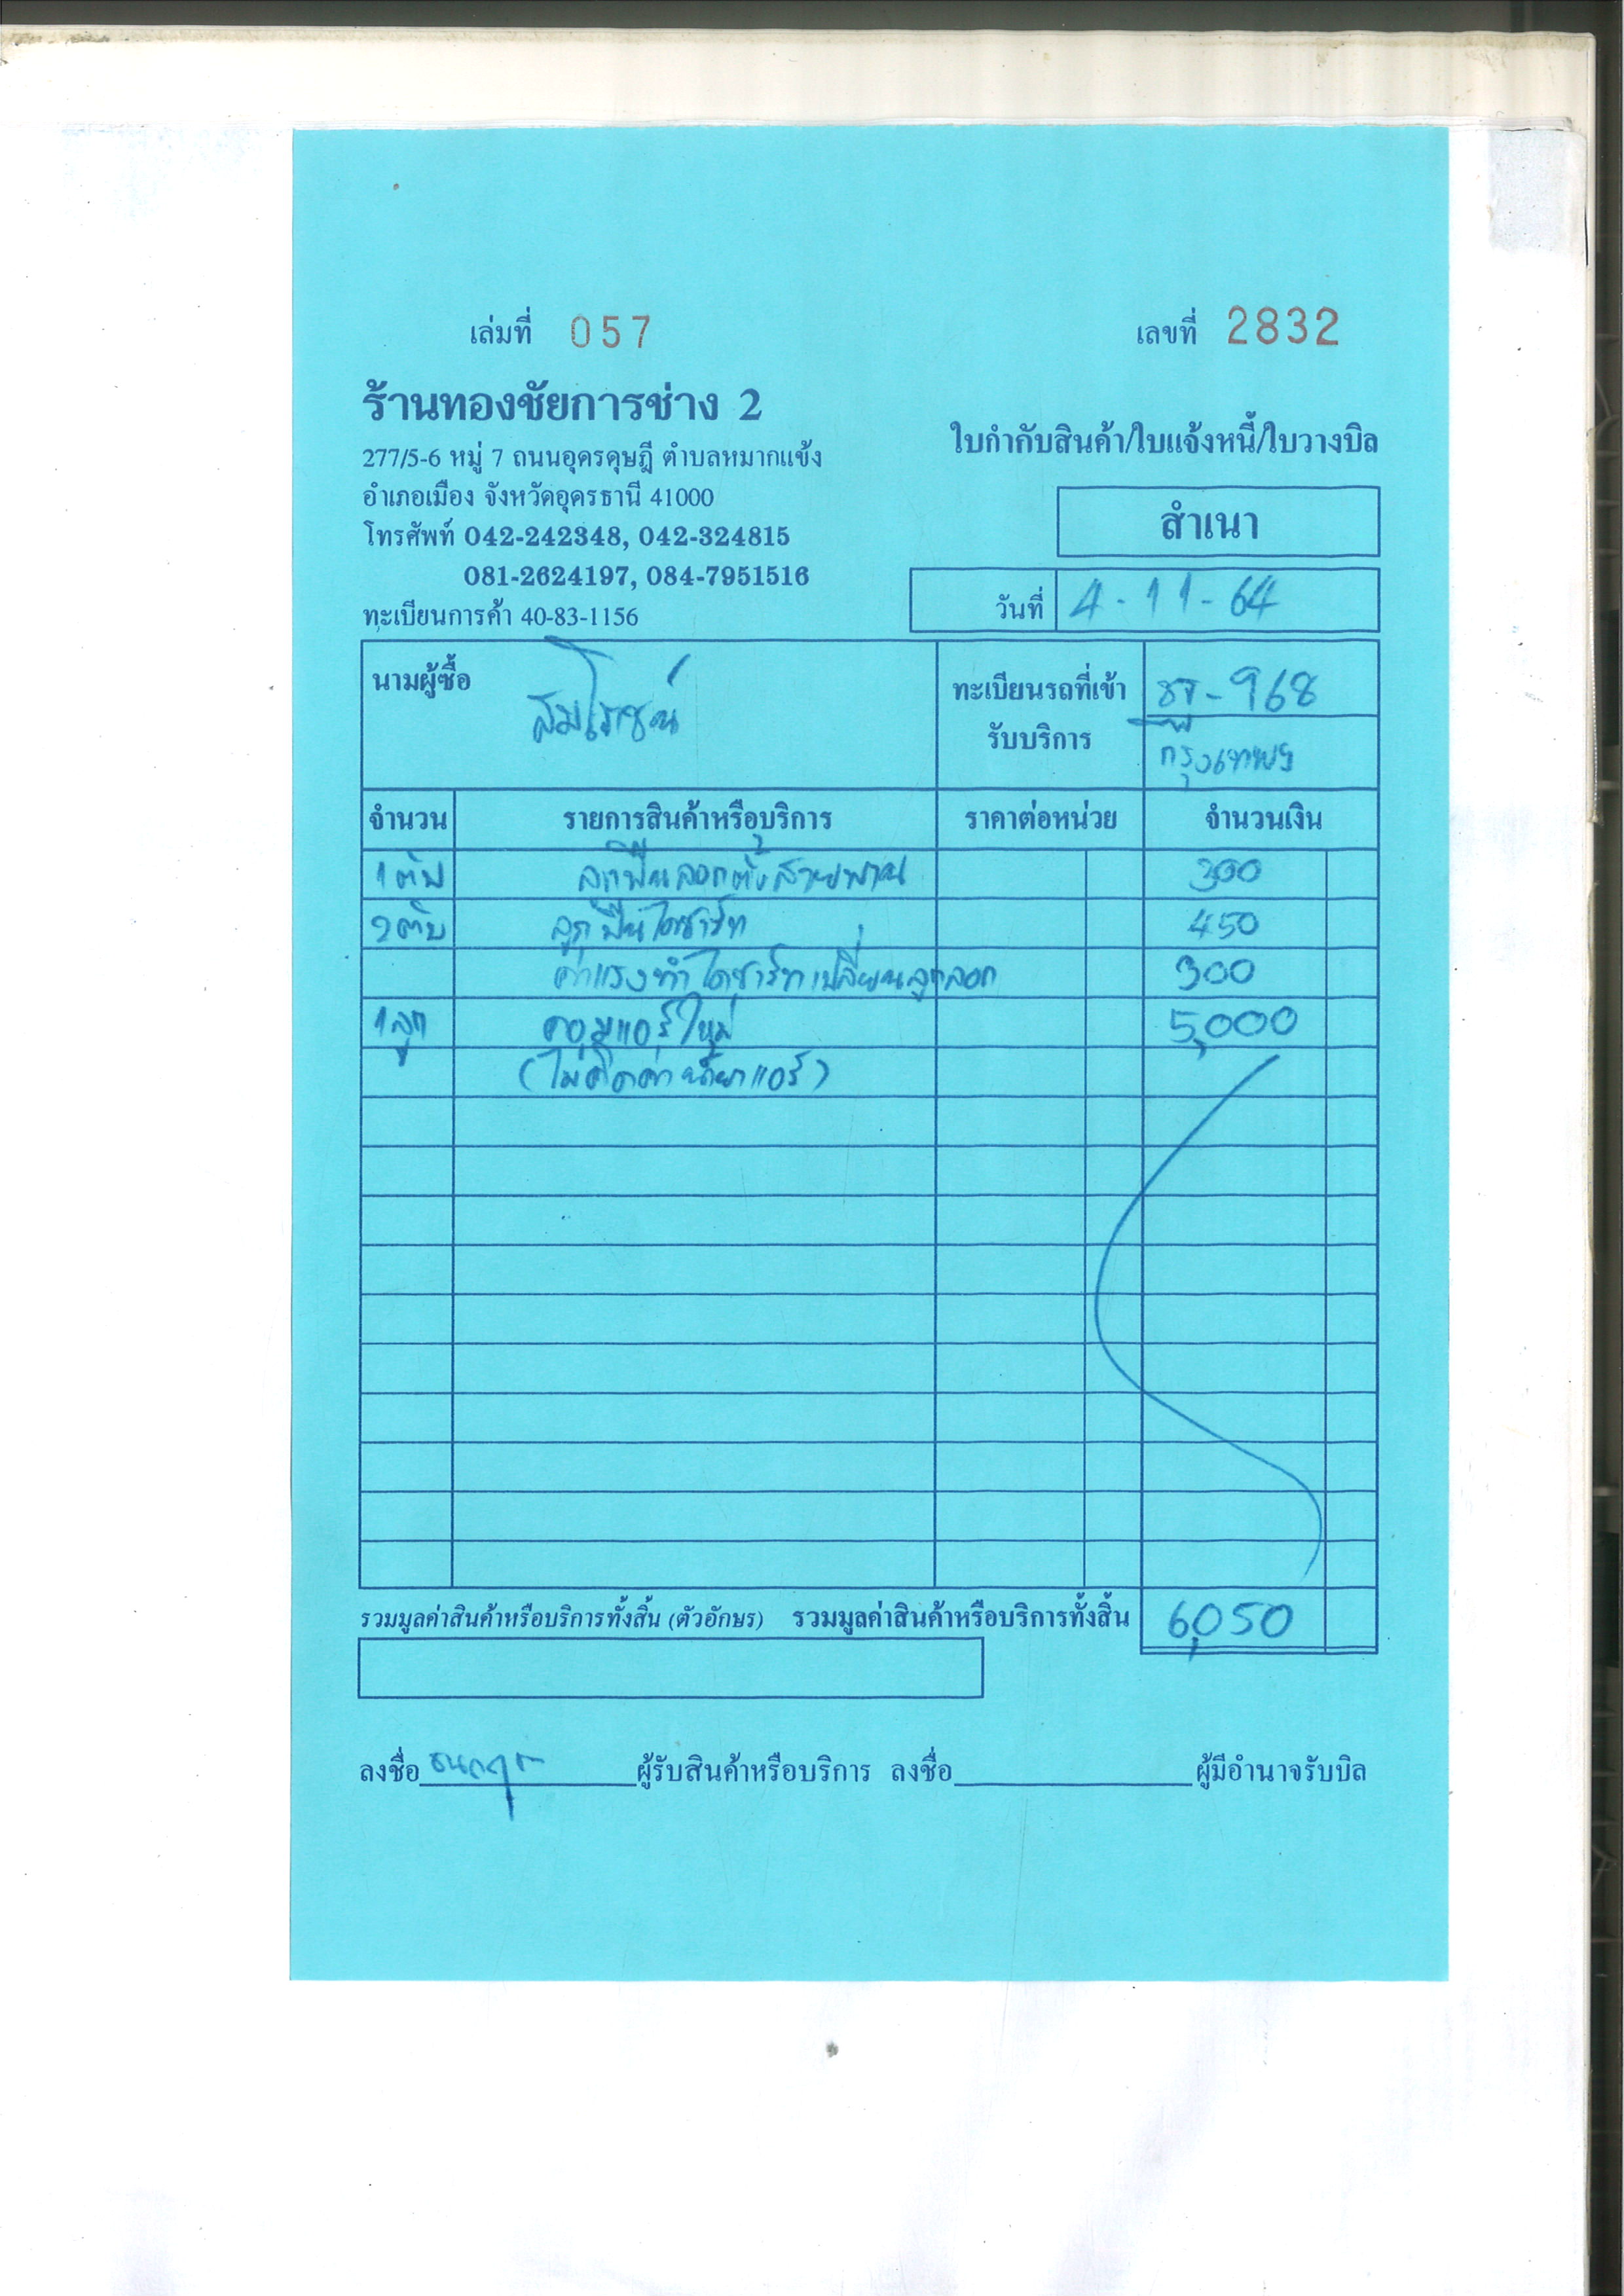 เล่มที่ 057 เลขที่ 2832
ร้านทองชัยการช่าง 2
ใบกำกับสินค้า/ใบแจ้งหนี้/ใบวางบิล
277/5-6 หมู่ 7 ถนนอุดรดุษฎี ตำบลหมากแข้ง
อำเภอเมือง จังหวัดอุดรธานี 41000
สำเนา
โทรศัพท์ 042-242348, 042-324815
081-2624197, 084-7951516
วันที่ 4-11-64
ทะเบียนการค้า 40-83-1156
นามผู้ซื้อ สมโรชน์ ทะเบียนรถที่เข้า -968
รับบริการ กรุงเทพฯ
จำนวน รายการสินค้าหรือบริการ ราคาต่อหน่วย จำนวนเงิน
1ตับ ลูกปืนลอกตั้งสายพาน 300
2ตับ ลูกปืนไดชาร์ท 450
ค่าแรงทำไดชาร์ทเปลี่ยนลูกลอก 300
1ลูก คอมแอร์ใหม่ 5,000
(ไม่คิดค่าน้ำยาแอร์)
รวมมูลค่าสินค้าหรือบริการทั้งสิ้น (ตัวอักษร) รวมมูลค่าสินค้าหรือบริการทั้งสิ้น 6,050
ลงชื่อ ผู้รับสินค้าหรือบริการ ลงชื่อ ผู้มีอำนาจรับบิล